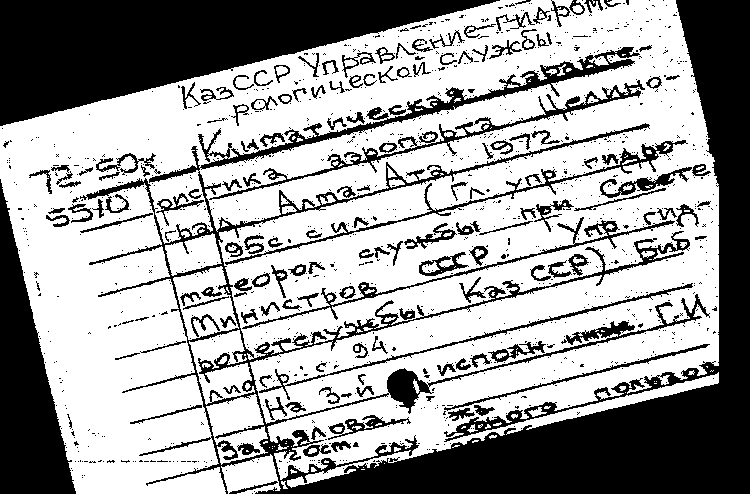 КазССР. Управление гидромете-
рологической службы.
Климатическая характе-
72-50к
5510
ристика аэропорта Целино-
град. Алма-Ата, 1972.
95с. с ил. (Гл. упр. гидро-
метеорол. службы при Совете
Министров СССР. Упр. гид-
рометслужбы КазССР). Биб-
лиогр.: с. 94.
На 3-й исполн. инж. Г.И.
Завьялова.
20см.
Для служебного пользов